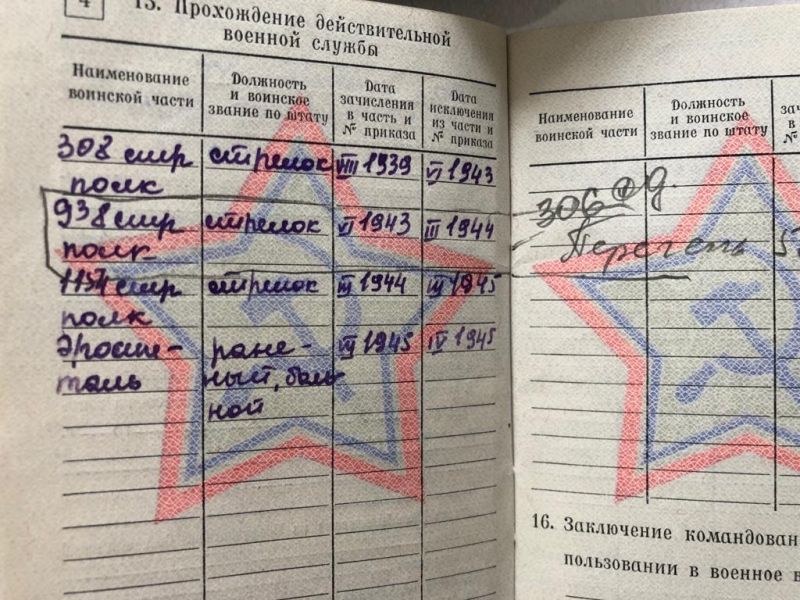 4
13. Прохождение действительной
военной службы
Наименование воинской части
Должность и воинское звание по штату
Дата зачисления в часть и № приказа
Дата исключения из части и № приказа
308 стр полк стрелок VIII 1939 VI 1943
938 стр полк стрелок VI 1943 III 1944
1134 стр полк стрелок III 1944 III 1945
Э/госпиталь раненый, больной III 1945 IV 1945
Наименование воинской части
Должность и воинское звание по штату
306
Перечень
16. Заключение командован
пользовании в военное в